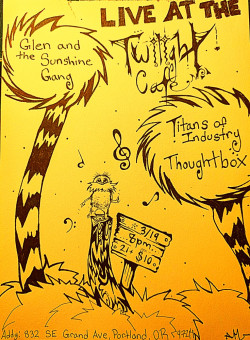 LIVE AT THE
Twilight
Café
Glen and
the Sunshine
Gang
Titans of
Industry
Thoughtbox
3/19
8pm
21+ $10
Addy: 832 SE Grand Ave, Portland, OR 97214